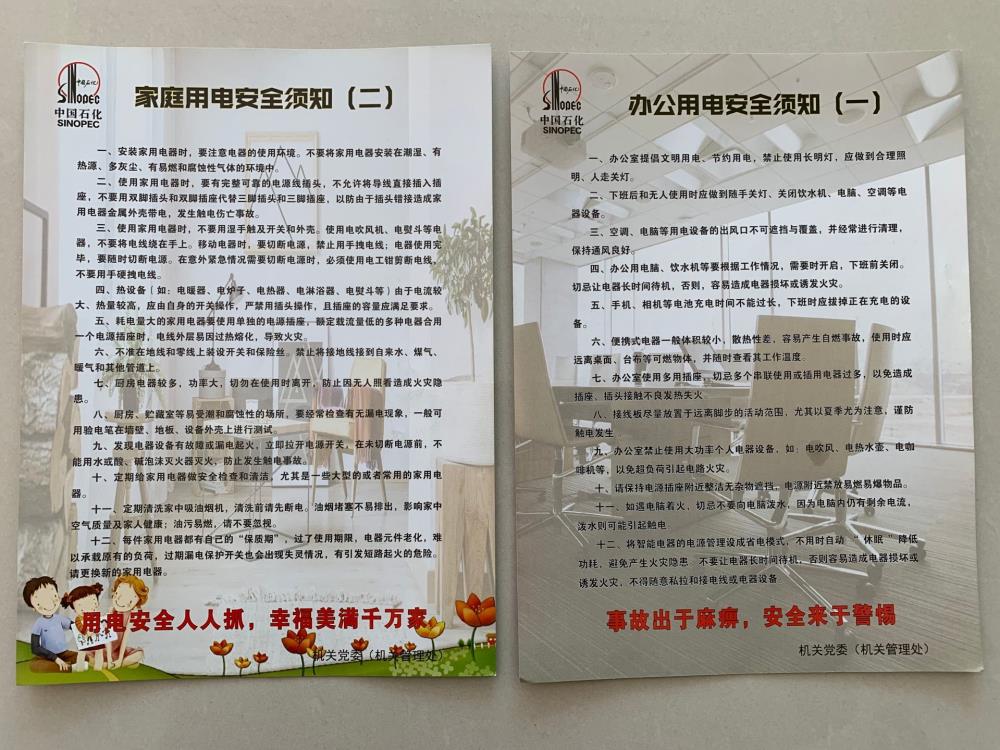 中国石化
SINOPEC
中国石化
SINOPEC
家庭用电安全须知（二）
一、安装家用电器时，要注意电器的使用环境。不要将家用电器安装在潮湿、有
热源、多灰尘、有易燃和腐蚀性气体的环境中。
二、使用家用电器时，要有完整可靠的电源线插头，不允许将导线直接插入插
座，不要用双脚插头和双脚插座代替三脚插头和三脚插座，以防由于插头错接造成家
用电器金属外壳带电，发生触电伤亡事故。
三、使用家用电器时，不要用湿手触及开关和外壳。使用电吹风机、电熨斗等电
器，不要将电线绕在手上。移动电器时，要切断电源，禁止用手拽电线；电器使用完
毕，要随时切断电源。在意外紧急情况需要切断电源时，必须使用电工钳剪断电线，
不要用手硬拽电线。
四、热设备（如：电暖器、电炉子、电热器、电淋浴器、电熨斗等）由于电流较
大、热量较高，应由自身的开关操作，严禁用插头操作，且插座的容量应满足要求。
五、耗电量大的家用电器要使用单独的电源插座，额定载流量低的多种电器合用
一个电源插座时，电线外层易因过热熔化，导致火灾。
六、不准在地线和零线上装设开关和保险丝。禁止将接地线接到自来水、煤气、
暖气和其他管道上。
七、厨房电器较多，功率大，切勿在使用时离开，防止因无人照看造成火灾隐
患。
八、厨房、贮藏室等易受潮和腐蚀性的场所，要经常检查有无漏电现象，一般可
用验电笔在墙壁、地板、设备外壳上进行测试。
九、发现电器设备有故障或漏电起火，立即拉开电源开关，在未切断电源前，不
能用水或酸、碱泡沫灭火器灭火，防止发生触电事故。
十、定期给家用电器做安全检查和清洁，尤其是一些大型的或者常用的家用电
器。
十一、定期清洗家中吸油烟机，清洗前请先断电。油烟堵塞不易排出，影响家中
空气质量及家人健康；油污易燃，请不要忽视。
十二、每件家用电器都有自己的“保质期”，过了使用期限，电器元件老化，难
以承载原有的负荷，过期漏电保护开关也会出现失灵情况，有引发短路起火的危险。
请更换新的家用电器。
用电安全人人抓，幸福美满千万家
机关党委（机关管理处）
中国石化
SINOPEC
中国石化
SINOPEC
办公用电安全须知（一）
一、办公室提倡文明用电、节约用电，禁止使用长明灯，应做到合理照
明、人走关灯。
二、下班后和无人使用时应做到随手关灯、关闭饮水机、电脑、空调等电
器设备。
三、空调、电脑等用电设备的出风口不可遮挡与覆盖，并经常进行清理，
保持通风良好。
四、办公用电脑、饮水机等要根据工作情况，需要时开启，下班前关闭。
切忌让电器长时间待机，否则，容易造成电器损坏或诱发火灾。
五、手机、相机等电池充电时间不能过长，下班时应拔掉正在充电的设
备。
六、便携式电器一般体积较小，散热性差，容易产生自燃事故，使用时应
远离桌面、台布等可燃物体，并随时查看其工作温度。
七、办公室使用多用插座，切忌多个串联使用或插用电器过多，以免造成
插座、插头接触不良发热失火。
八、接线板尽量放置于远离脚步的活动范围，尤其以夏季尤为注意，谨防
触电发生。
九、办公室禁止使用大功率个人电器设备，如：电吹风、电热水壶、电咖
啡机等，以免超负荷引起电路火灾。
十、请保持电源插座附近整洁无杂物遮挡，电源附近禁放易燃易爆物品。
十一、如遇电脑着火，切忌不要向电脑泼水，因为电脑内仍有剩余电流，
泼水则可能引起触电。
十二、将智能电器的电源管理设成省电模式，不用时自动“休眠”降低
功耗，避免产生火灾隐患。不要让电器长时间待机，否则容易造成电器损坏或
诱发火灾，不得随意私拉和接电线或电器设备。
事故出于麻痹，安全来于警惕
机关党委（机关管理处）